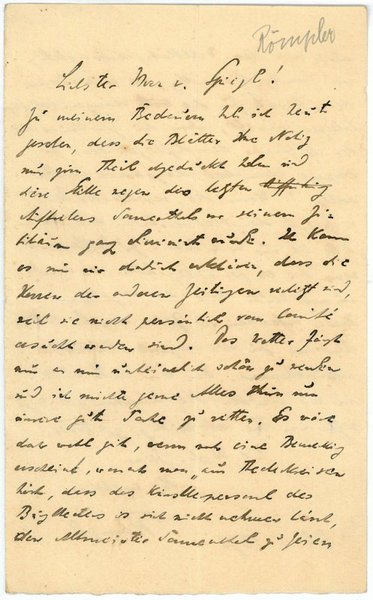 Römpler
Liebster Herr v. Spiegl!
Zu meinem Bedauern hab ich heut
gesehen, dass die Blätter Ihre Notiz
nur zum Theil abgedruckt haben und
diese Stelle wegen des letzten
Auftretens Sonnenthals vor seinem Ju-
biläum ganz ignorirt wurde. Ich kann
es mir nur dadurch erklären, dass die
Herren der anderen Zeitungen verletzt sind,
weil sie nicht persönlich vom Comité
ersucht worden sind. Das Wetter fängt
nun an mir unheimlich schön zu werden
und ich möchte gerne Alles thun um
unsere gute Sache zu retten. Es wäre
daher wohl gut, wenn noch eine Bemerkung
erscheint, wonach man aus Theaterkreisen
hört, dass das Künstlerpersonal des
Burgtheaters es sich nicht nehmen lässt,
den Altmeister Sonnenthal zu feiern